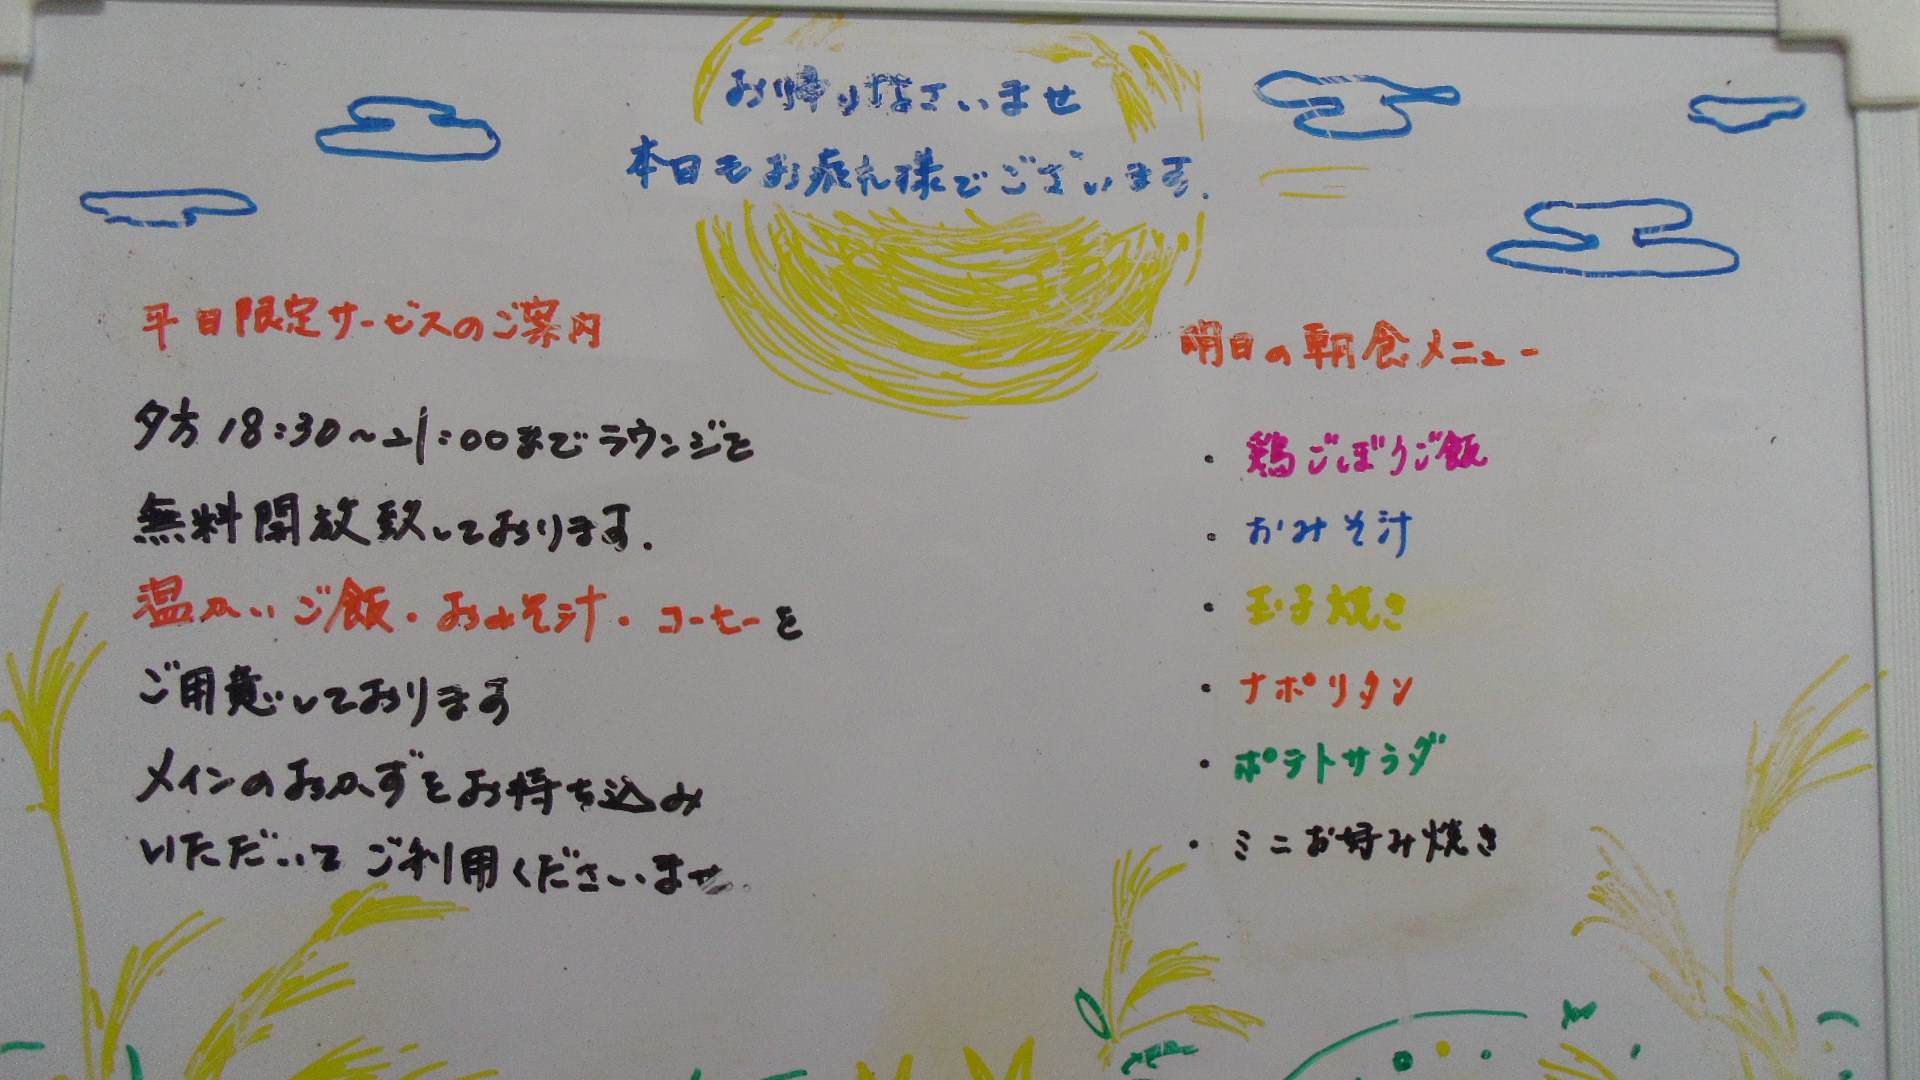 お帰りなさいませ
本日もお疲れ様でございます.
平日限定サービスのご案内
夕方18:30~21:00までラウンジを
無料開放致しております.
温かいご飯・おみそ汁・コーヒーを
ご用意しております
メインのおかずをお持ち込み
いただいてご利用くださいませ.
明日の朝食メニュー
・鶏ごぼうご飯
・おみそ汁
・玉子焼き
・ナポリタン
・ポテトサラダ
・ミニお好み焼き